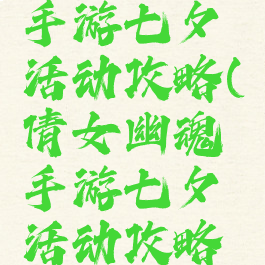 手游七夕
活动攻略(
倩女幽魂
手游七夕
活动攻略